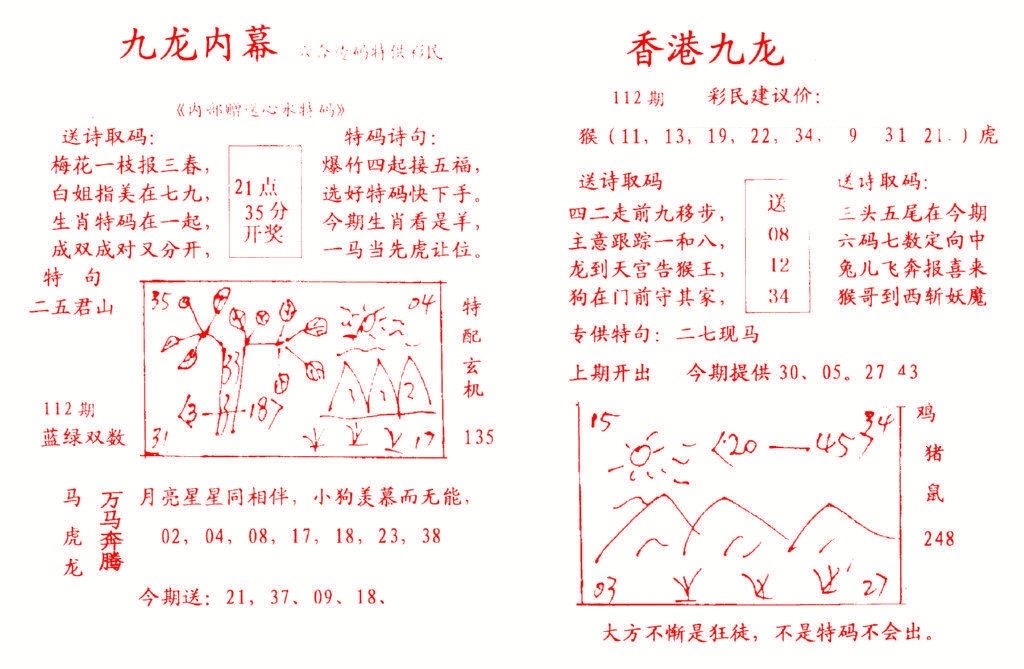 九龙内幕
《内部赠送心水特码》
送诗取码：
梅花一枝报三春，
白姐指美在七九，
生肖特码在一起，
成双成对又分开，
21点
35分
开奖
特码诗句：
爆竹四起接五福，
选好特码快下手。
今期生肖看是羊，
一马当先虎让位。
特 句
二五君山
112期
蓝绿双数
35
04
33
<3-3-18>
1
1
2
31
17
特配玄机
135
马虎龙
万马奔腾
月亮星星同相伴，小狗羡慕而无能，
02，04，08，17，18，23，38
今期送：21，37、09、18、
香港九龙
112期 彩民建议价：
猴（11，13，19，22，34． 9 31 21．）虎
送诗取码
四二走前九移步，
主意跟踪一和八，
龙到天宫告猴王，
狗在门前守其家，
送
08
12
34
送诗取码：
三头五尾在今期
六码七数定向中
兔儿飞奔报喜来
猴哥到西斩妖魔
专供特句：二七现马
上期开出 今期提供30、05。27 43
15
34
<20—45>
03
27
鸡
猪
鼠
248
大方不惭是狂徒，不是特码不会出。